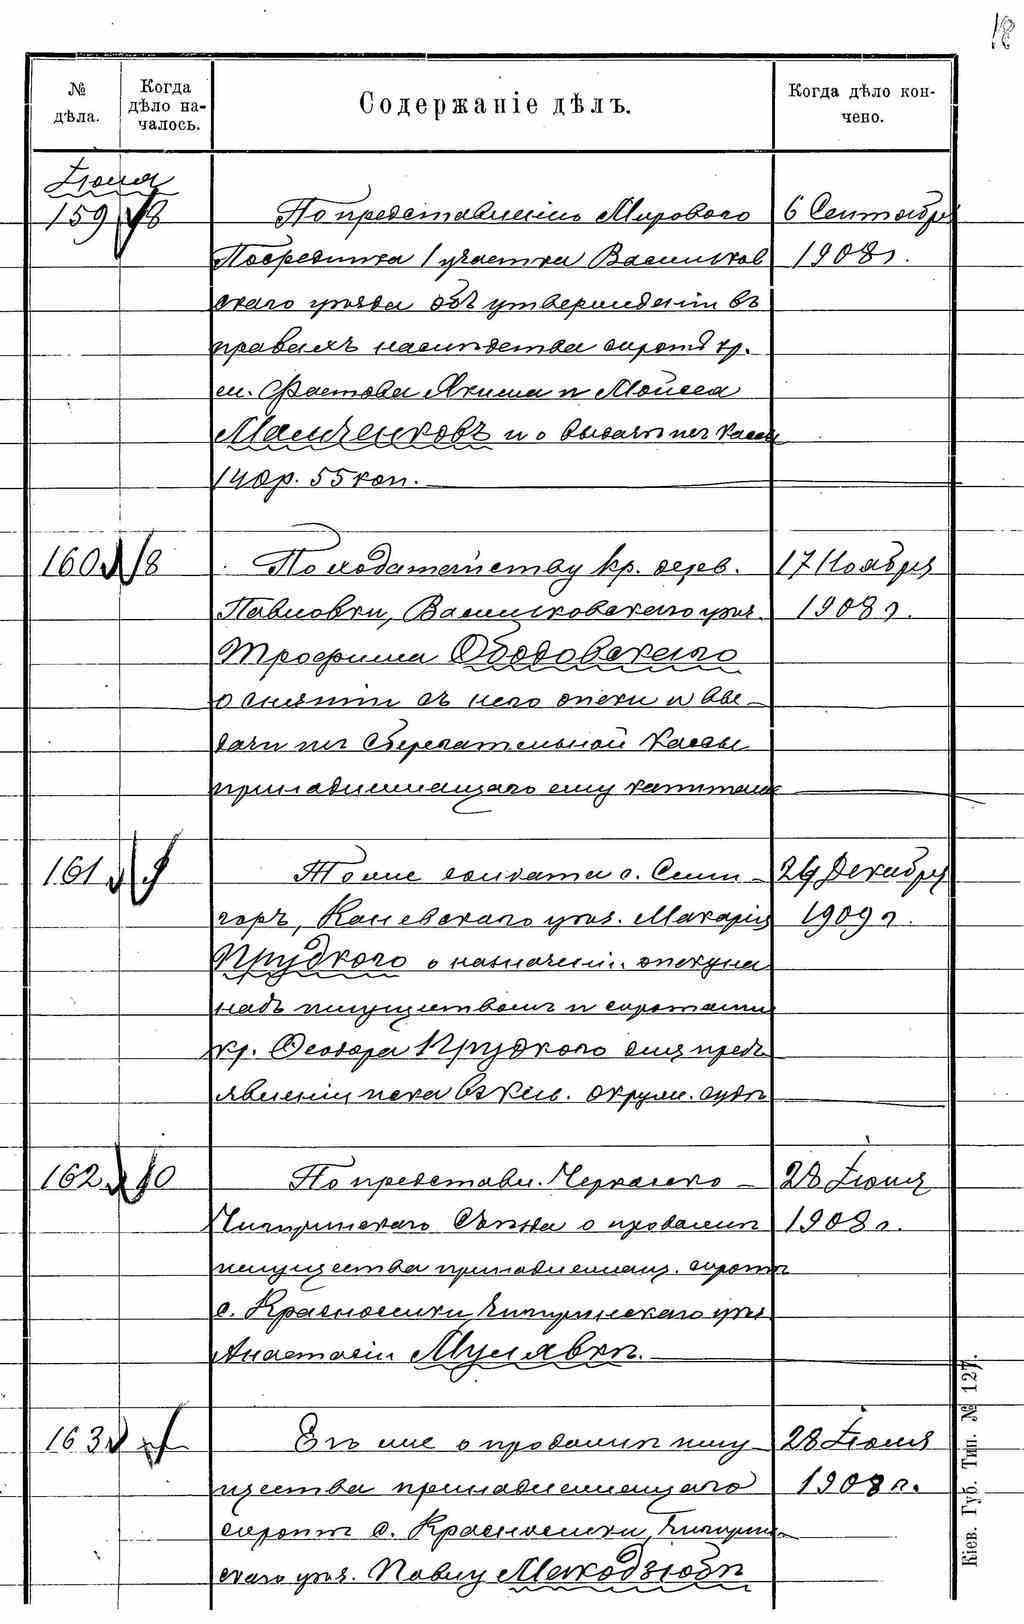 18
№ дѣла.
Когда дѣло началось.
Содержаніе дѣлъ.
Когда дѣло кончено.
Іюня
159 8 По представленію Мирового 6 Сентября
Посредника 1 участка Васильков 1908 г.
скаго уѣзда объ утвержденіи въ
правахъ наслѣдства сиротъ кр.
м. Фастова Якима и Мойсея
Мамченковъ и о выдачѣ изъ Кассы
140 р. 55 коп.
160 8 По ходатайству кр. дерев. 17 Ноября
Павловки, Васильковскаго уѣз. 1908 г.
Трофима Ободовскаго
о снятіи съ него опеки и вы-
дачи изъ Сберегательной Кассы
принадлежащаго ему капитала
161 9 Тоже солдата с. Семи- 29 Декабря
горъ, Каневскаго уѣз. Макарія 1909 г.
Прудкого о назначеніи опекуна
надъ имуществомъ и сиротами
кр. Ѳеодора Прудкого для предъ
явленія иска въ Кіев. окружн. судѣ
162 10 По представл. Черкасско- 28 Іюня
Чигиринскаго Съѣзда о продажѣ 1908 г.
имущества принадлежащ. сиротѣ
с. Красноселки, Чигиринскаго уѣз.
Анастасіи Мулявкѣ.
163 Его же о продажѣ иму- 28 Іюня
щества принадлежащаго 1908 г.
сиротѣ с. Красноселки, Чигирин-
скаго уѣз. Павлу Макодзюбѣ
Кіев. Губ. Тип. № 127.